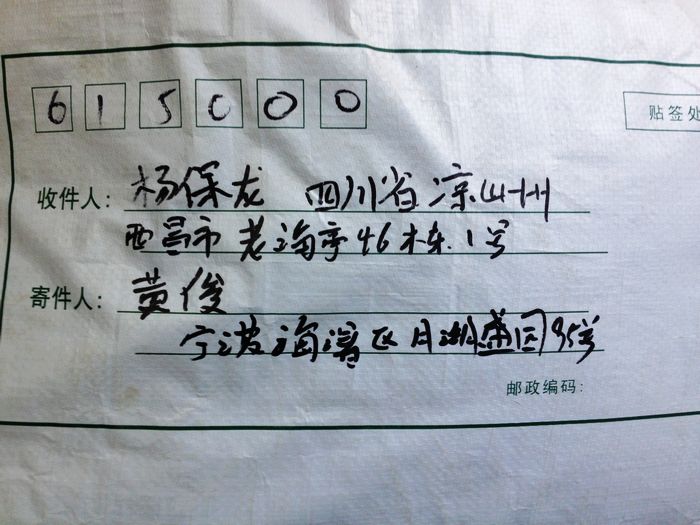 615000
贴签处
收件人: 杨保龙 四川省凉山州
西昌市老海亭46栋.1号
寄件人: 黄俊
宁波海曙区月湖盛园95号
邮政编码: